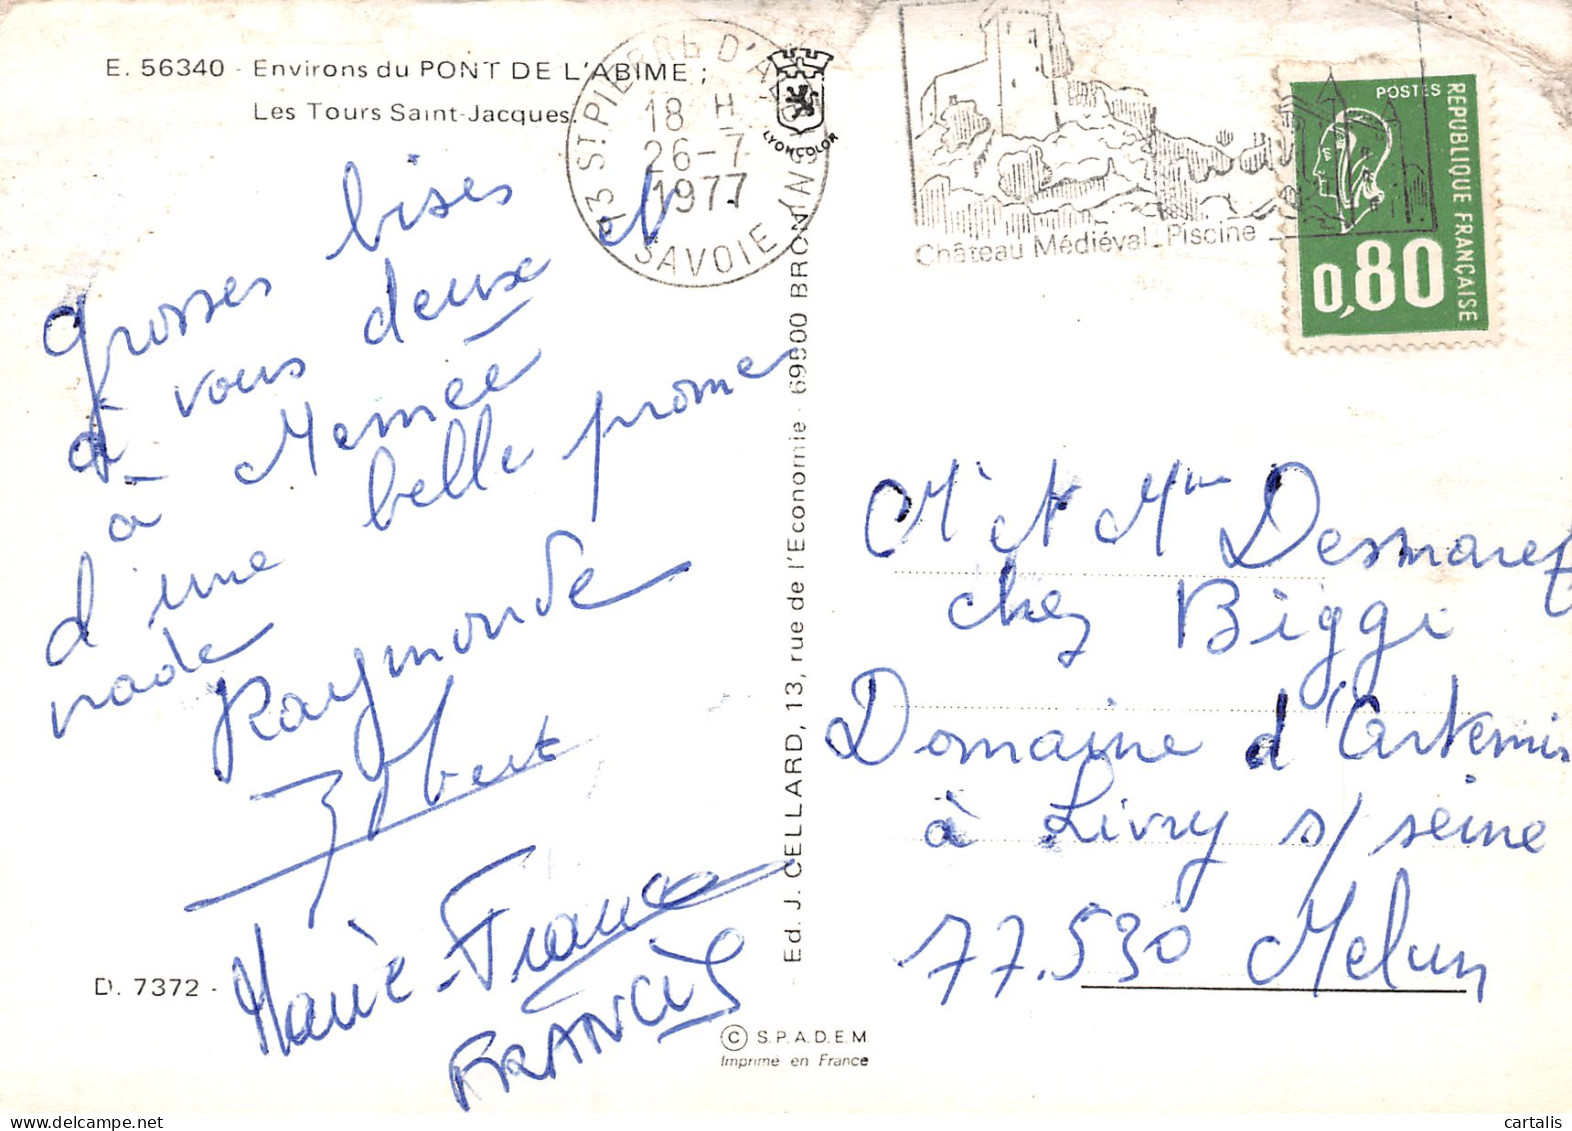 E. 56340 - Environs du PONT DE L'ABIME ;
Les Tours Saint-Jacques.
73 St PIERRE D'ALBIGNY
18 H
26-7
1977
SAVOIE
LYONCOLOR
Château Médiéval_Piscine
POSTES
REPUBLIQUE FRANÇAISE
0,80
Grosses bises
à vous deux et
à Memée
d'une belle prome
nade
Raymonde
Marie-France
FRANCIS
D. 7372 -
Ed. J. CELLARD, 13, rue de l'Economie - 69500 BRON
© S.P.A.D.E.M.
Imprimé en France
Mr et Mme Desmaret
chez Biggi
Domaine d'Artemis
à Livry s/ seine
77.530 Melun
cartalis